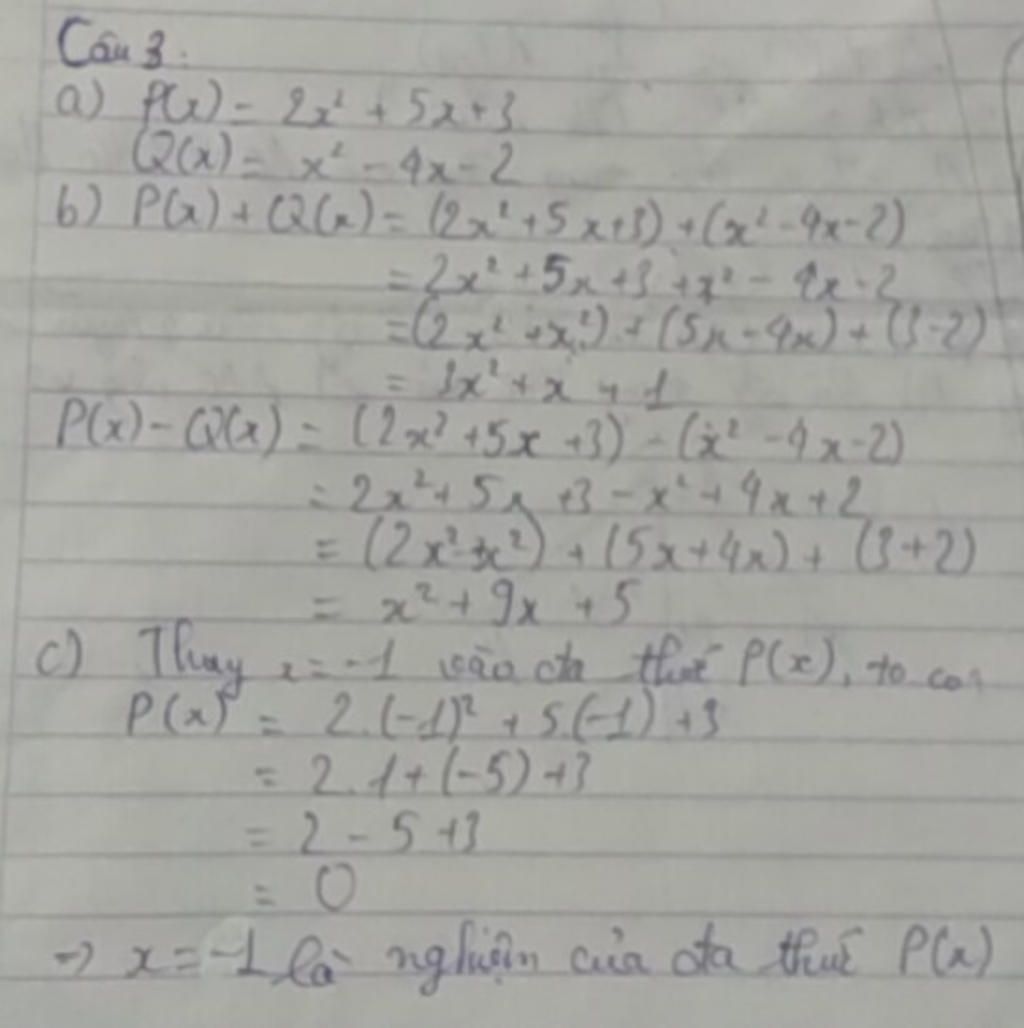 Câu 3.
a) P(x) = 2x² + 5x + 3
Q(x) = x² - 4x - 2
b) P(x) + Q(x) = (2x² + 5x + 3) + (x² - 4x - 2)
= 2x² + 5x + 3 + x² - 4x - 2
= (2x² + x²) + (5x - 4x) + (3 - 2)
= 3x² + x + 1
P(x) - Q(x) = (2x² + 5x + 3) - (x² - 4x - 2)
= 2x² + 5x + 3 - x² + 4x + 2
= (2x² - x²) + (5x + 4x) + (3 + 2)
= x² + 9x + 5
c) Thay x = -1 vào đa thức P(x), ta có:
P(x) = 2.(-1)² + 5.(-1) + 3
= 2.1 + (-5) + 3
= 2 - 5 + 3
= 0
→ x = -1 là nghiệm của đa thức P(x)